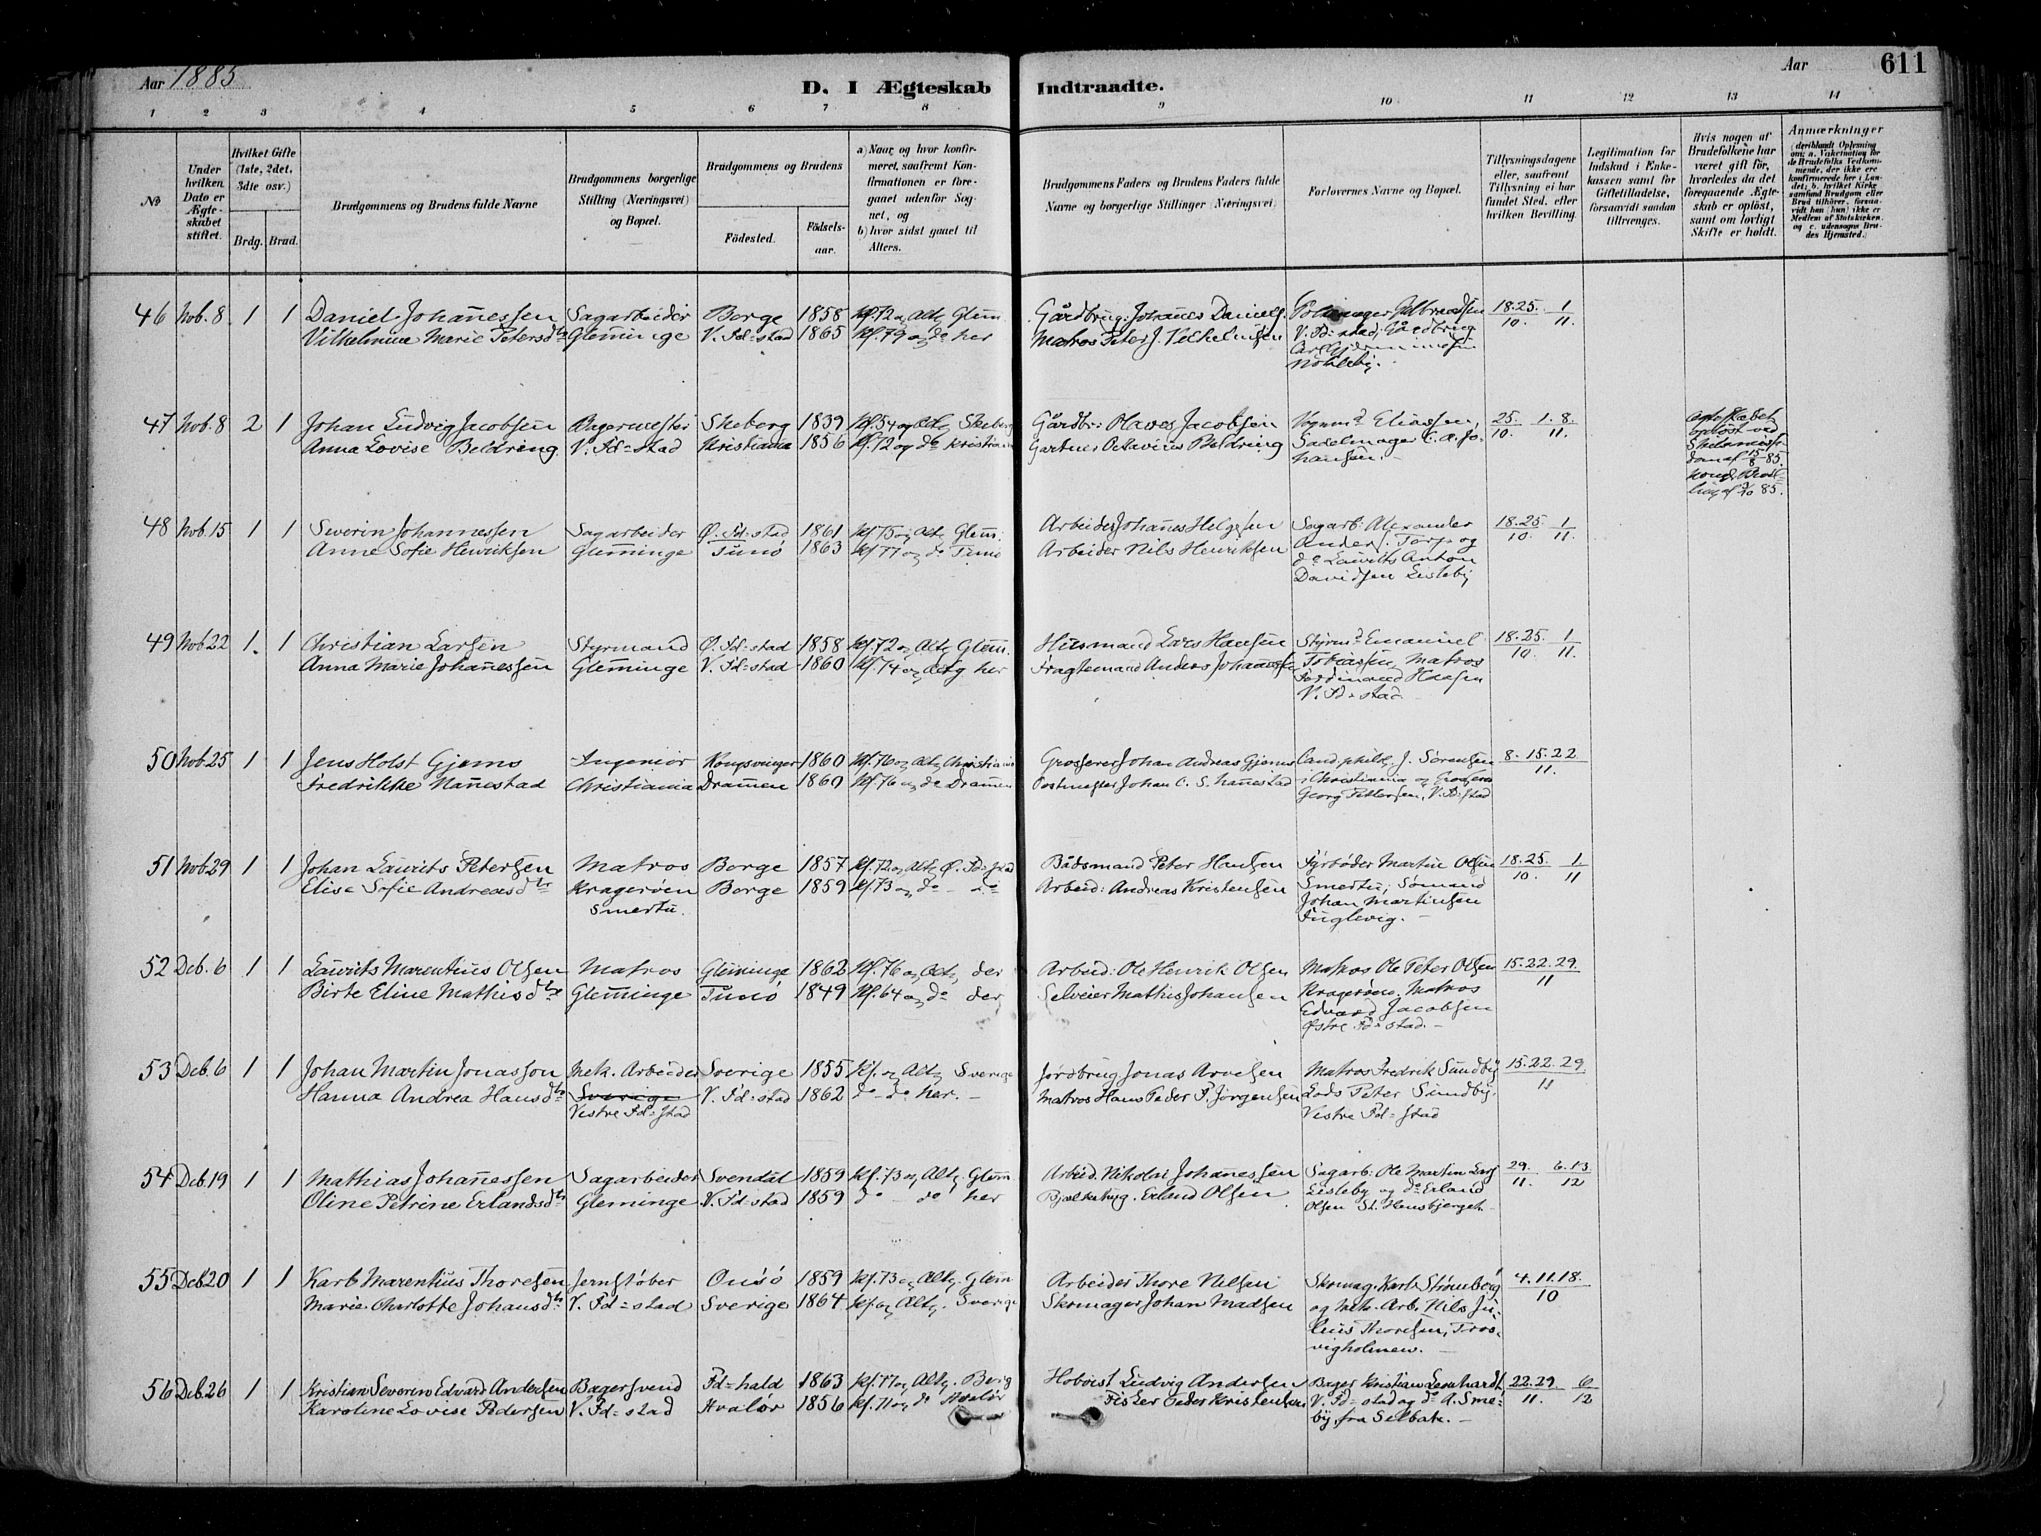 Aar 1885
D. I Ægteskab Indtraadte.
Aar 611
1 2 3 4 5 6 7 8 9 10 11 12 13 14
No
Under hvilken Dato er Ægteskabet stiftet.
Hvilket Gifte (1ste, 2det, 3dte osv.)
Brdg. Brud.
Brudgommens og Brudens fulde Navne
Brudgommens borgerlige Stilling (Næringsvei) og Bopæl.
Brudgommens og Brudens
Födested. Födselsaar.
a) Naar og hvor konfirmeret, saafremt Konfirmationen er foregaaet udenfor Sognet, og
b) hvor sidst gaaet til Alters.
Brudgommens Faders og Brudens Faders fulde Navne og borgerlige Stillinger (Næringsvei)
Forlovernes Navne og Bopæl.
Tillysningsdagene eller, saafremt Tillysning ei har fundet Sted, efter hvilken Bevilling.
Legitimation for Indskud i Enkekassen samt for Giftetilladelse, forsaavidt saadan tiltrænges.
Hvis nogen af Brudefolkene har været gift för, hvorledes da det foregaaende Ægteskab er oplöst, samt om lovligt Skifte er holdt.
Anmærkninger
46 Nov. 8 1 1 Daniel Johanessen Sagarbeider Borge 1858 Kf. 72 og Altg Glem. Gårdbrug: Johanes Daniels. 18. 25. 1
Vilhelmine Marie Petersdtr Gleminge V. Fd=stad 1865 Kf. 79 og do her Matros Peter J. Vilhelmsen V. Fd=stad, Gårdbrug 10. 11.
47 Nov. 8 2 1 Johan Ludvig Jacobsen Bagermester Skeberg 1839 Kf. 54 og Altg Skeberg Gårdbr: Olaves Jacobsen Vognmd Eliassen, 25. 1. 8.
Anna Lovise Beldring V. Fd=stad Kristiania 1856 Kf. 72 og do Kristiania Gartner Octavius Beldring Sadelmager C. A. Jo- 10. 11.
hansen.
48 Nov. 15 1 1 Severin Johannessen Sagarbeider Ø. Fd=stad 1861 Kf 75 og Altg Glem. Arbeider Johanes Helgesen Sagarb. Alexander 18. 25. 1
Anne Sofie Henriksen Gleminge Tunø 1863 Kf 77 og do Tunø Arbeider Nils Henriksen Anders. Torp og 10. 11.
do Laurits Anton
Davidsen Lisleby
49 Nov. 22 1. 1 Christian Larsen Styrmand Ø. Fd=stad 1858 Kf. 72 og Altg Glem. Husmand Lars Hansen Styrmd Emanuel 18. 25. 1
Anna Marie Johanessen Gleminge V. Fd=stad 1860 Kf. 74 og Altg her Fragtemand Anders Johanessen Tobiassen, Matros 10. 11.
Ferdinand Hansen
V. Fd=stad
50 Nov. 25 1 1 Jens Holst Gjems Ingeniør Kongsvinger 1860 Kf. 76 og Altg Christiania Grosserer Johan Andreas Gjems Cand. phil. J. Sørensen 8. 15. 22
Fredrikke Nanestad Christiania Dramen 1860 Kf. 76 og do Dramen Postmester Johan C. S. Nanestad i Christiania og Grosserer 11.
Georg Pettersen, V. Fd=stad
51 Nov. 29 1 1 Johan Laurits Petersen Matros Borge 1857 Kf. 72 og Altg Ø. Fd=stad Bådsmand Peter Hansen Fyrbøder Martin Olsen 18. 25. 1
Elise Sofie Andreasdtr Kragerøen Borge 1859 Kf 73 og do - do Arbeid: Andreas Kristensen Smertu, Sømand 10. 11
Smertu. Johan Martinsen
Fuglevig.
52 Dcb. 6 1 1 Laurits Marentius Olsen Matros Gleminge 1862 Kf. 76 og Altg der Arbeid: Ole Henrik Olsen Matros Ole Peter Olsen 15. 22. 29.
Birte Eline Mathisdtr Gleminge Tunø 1849 Kf. 64 og do der Selveier Mathis Johansen Kragerøen, Matros 11
Edvard Jacobsen
Østre Fd=stad.
53 Dcb. 6 1 1 Johan Martin Jonasson Mek. Arbeider Sverige 1855 Kf. og Altg Sverige Jordbrug Jonas Arvesen Matros Fredrik Sundby 15. 22. 29
Hanna Andrea Hansdtr Sverige V. Fd=stad 1862 do - do her. Matros Hans Peder P. Jörgensen Lods Peter Sundby. 11
Vestre Fd=stad Vestre Fd=stad
54 Dcb. 19 1 1 Mathias Johanessen Sagarbeider Svendal 1859 Kf. 73 og Altg. Glem Arbeid. Nikolai Johanessen Sagarb: Ole Martin Lars 29. 6. 13
Oline Petrine Erlandsdtr Gleminge V. Fd=stad 1859 do - do her Erland Olsen Lisleby og do Erland 11. 12
Olsen St. Hansbjerget.
55 Dcb 20 1 1 Karl Marentius Thoresen Jernstøber Onsø 1859 Kf. 73 og Altg. Glem Arbeider Thore Nilsen Skomag. Karl Strømberg 4. 11. 18.
Marie Charlotte Johansdtr V. Fd=stad Sverige 1864 Kf. og Altg. Sverige Skomager Johan Madsen og Mek. Arb. Nils Ju- 10
lius Thoresen, Tros-
vigholmen.
56 Dcb. 26 1 1 Kristian Severin Edvard Andersen Bagersvend Fd=hald 1863 Kf 77 og Altg. Berg Ludvig Andersen Bager Kristian Leonhardt 22. 29. 6
Karoline Lovise Pedersen V. Fd=stad Hvaler 1856 Kf. 71 og do Hvaler Fisker Peder Kristensen V. Fd=stad og do A. Sme- 11. 12
by, fra Selbak.